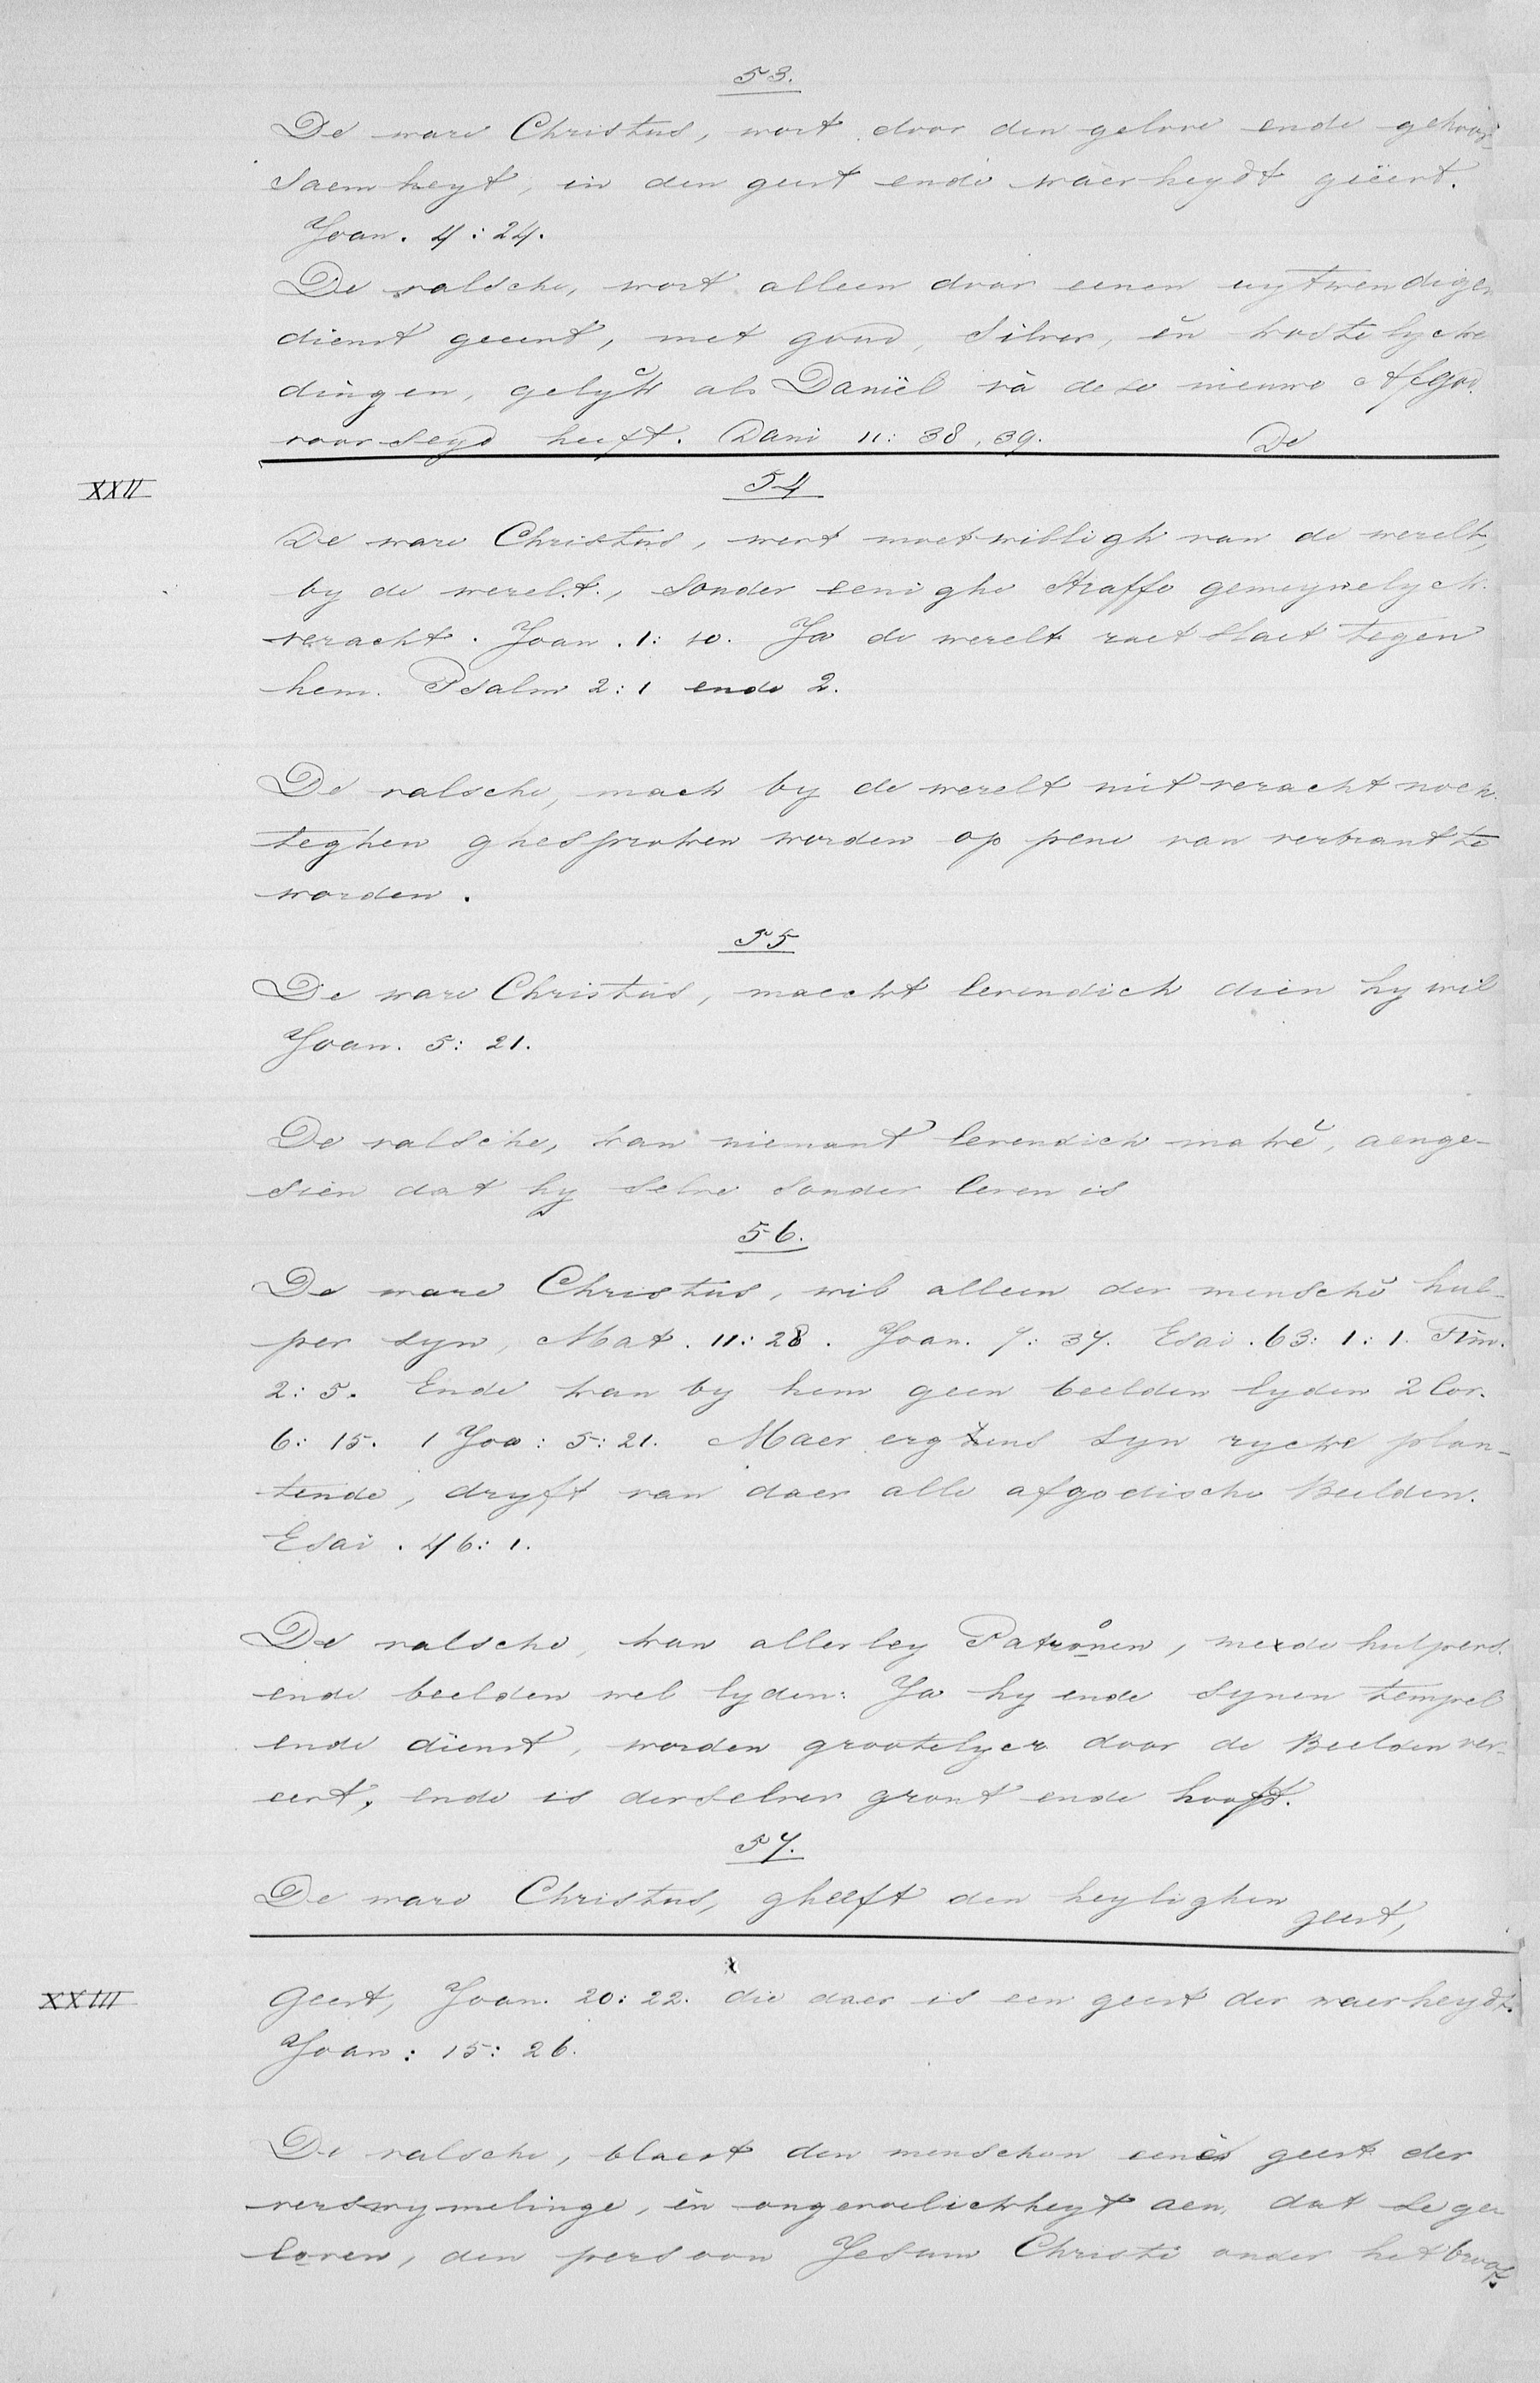 53.
De ware Christus, wort door den gelove ende gehoor-
saemheyt, in den geest ende waerheydt gëeert.
Joan. 4:24.
De valsche, wort alleen door eenen uytwendigen
dienst geeert, met goud, silver, eñ kostelycke
dingen, gelyck als Daniël vā dese nieuwe Afgod
voorseyd heeft. Dani 11:38,39. De
XXII
54
De ware Christus, wert moetwilligh van de werelt,
by de werelt, sonder eenighe straffe gemeynelyck
veracht. Joan. 1:10. Ja de werelt raet slaet tegen
hem. Psalm 2:1 ende 2.
De valsche, mach by de werelt niet veracht noch
teghen ghesproken worden op pene van verbrant te
worden.
55
De ware Christus, maeckt levendich dien hy wil
Joan. 5:21.
De valsche, kan niemant levendich makē, aenge-
sien dat hy selve sonder leven is
56.
De ware Christus, wil alleen der menschē hul-
per syn, Mat. 11:28. Joan. 7:37. Esai. 63:1:1. Tim.
2:5. Ende kan by hem geen beelden lyden 2 Cor.
6:15. 1 Joa: 5:21. Maer ergens syn rycke plan-
tende, dryft van daer alle afgodische Beelden.
Esai. 46:1.
De valsche, kan allerley Patronen, mede hulpers
ende beelden wel lyden: Ja hy ende synen tempel
ende dienst, worden grootelycx door de Beelden ver-
eert, ende is derselver gront ende hooft.
57.
De ware Christus, gheeft den heylighen
geest,
XXIII
Geest, Joan. 20:22. die daer is een geest der waerheydt.
Joan: 15:26.
De valsche, blaest den menschen eenen geest der
verswymelinge, eñ ongevoelickheyt aen, dat se ge-
loven, den persoon Jesum Christi onder het broot